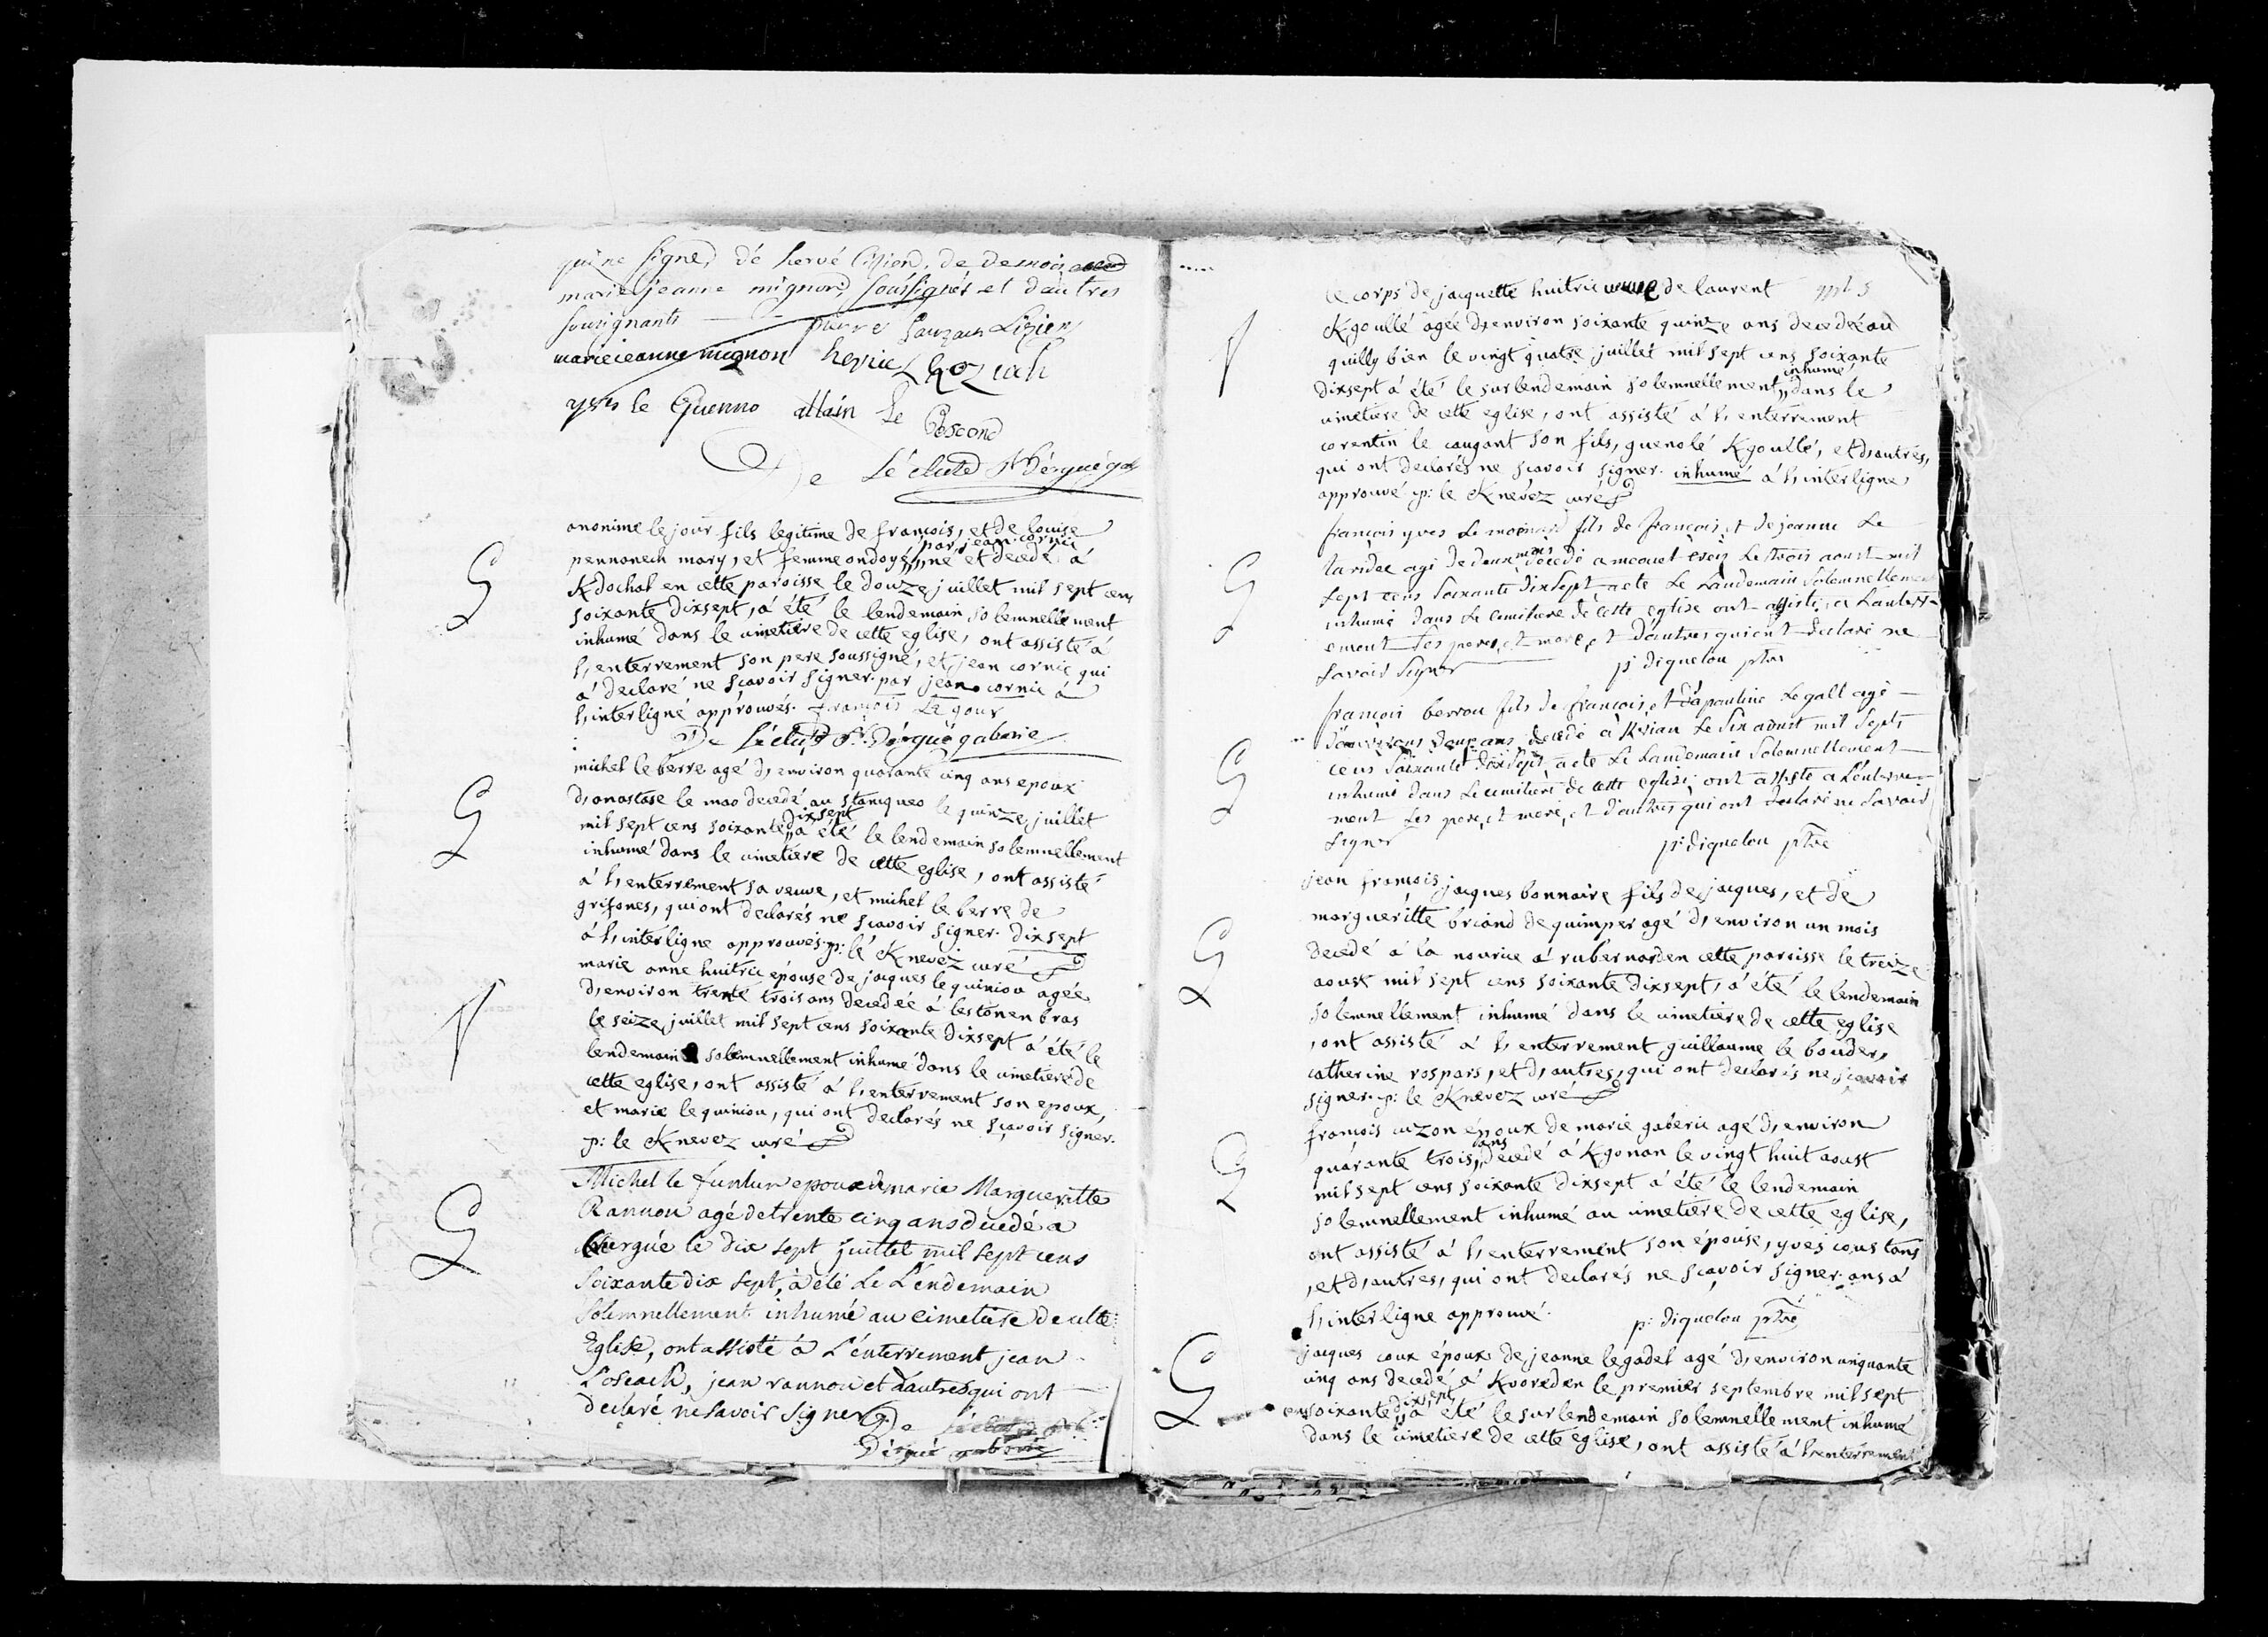 qui ne signe, de hervé lizien, de demoiselle
marie jeanne mignon, soussignés et d'autres
sousignants
pierre Lauzach Lizien
marie jeanne mignon hervie L hoziach
yves le Guenno allain Le Poscond
De Lécluse Rr dérgué gab
anonime le jour fils legitime de françois, et de louise
par jean cornic
pennanech mary, et femme ondoyé,, né et decedé à
Kdochal en cette paroisse le douze juillet mil sept cens
soixante dixsept, á été le lendemain solemnellement
inhumé dans le cimetiére de cette eglise, ont assisté á
l,enterrement son pere soussigné, et jean cornic qui
a declaré ne sçavoir signer. par jean cornic á
l,interligne approuvés. françois Le goux
De Lécluse Rr. Dérgué gaberic
michel le berre agé d,environ quarante cinq ans epoux
d,anastase le mao decedé au staniqueo le quinze juillet
dixsept
mil sept cens soixante,, á été le lendemain solemnellement
inhumé dans le cimetiére de cette eglise, ont assisté
á l,enterrement sa veuve, et michel le berre de
grifones, qui ont declarés ne sçavoir signer. dixsept
á l,interligne approuvés. p: le Knevez curé
marie anne huitric épouse de jacques le quiniou agée
d,environ trente trois ans decedée á lestonen bras
le seize juillet mil sept cens soixante dixsept á été le
lendemain solemnellement inhumé dans le cimetiere de
cette eglise, ont assisté á l,enterrement son epoux,
et marie le quiniou, qui ont declarés ne sçavoir signer.
p: le Knevez curé
Michel le funtun epoux de marie Margueritte
Rannou agé de trente cinq ans decedé a
le dix sept juillet mil sept cens
soixante dix sept, à été Le L'endemain
solemnellement inhumé au cimetiere de cette
Eglise, ont assisté à L'énterrement jean
Loseach, jean rannou et d'autres qui ont
declaré ne savoir signer De Lécluse
Dérgué gaberic
le corps de jacquette huitric veuve de laurent
Kgoullé agée d,environ soixante quinze ans decedée au
quilly bien le vingt quatre juillet mil sept cens soixante
inhumé
dixsept á été le surlendemain solemnellement,, dans le
cimetiere de cette eglise, ont assisté á l,enterrement
corentin le caugant son fils, guenolé Kgoullé, et d,autres,
qui ont declarés ne sçavoir signer. inhumé á l,interligne
approuvé p: le Knevez curé
françois yves Le moenner fils de françois, et de jeanne Le
mois
laridec agé de deux decedé a mcouet creis Le trois aoust mil
sept cens soixante dixsept a ete Le Landemain solemnellement
inhumé dans Le cimitiere de cette eglise ont assisté, a Lanterr
ement Ses peres, et mere, et d'autres qui ont declaré ne
savoir signer p: diquelou ptre
françois berrou fils de françois, et de pauline Le gall agé
d'environs deux ans decedé a Krian Le Six aoust mil Sept
cens soixante dixsept a ete Le Landemain Solemnellement
inhumé dans Le cimitiere de cette eglise, ont assisté a Lenterre
ment Ses pere, et mere, et d'autres qui ont declaré ne savoir
signer p: diquelou ptre
jean françois jacques bonnaire fils de jacques, et de
margueritte briand de quimper agé d,environ un mois
decedé á la nourice á rubernard en cette paroisse le treize
aoust mil sept cens soixante dixsept, á été le lendemain
solemnellement inhumé dans le cimetiere de cette eglise
, ont assisté á l,enterrement guillaume le bouder,
catherine rospars, et d,autres, qui ont declarés ne sçavoir
signer. p: le Knevez curé
françois cuzon époux de marie gaberic agé d,environ
ans
quarante trois,, decedé á Kgonan le vingt huit aoust
mil sept cens soixante dixsept á été le lendemain
solemnellement inhumé au cimetiere de cette eglise,
ont assisté á l,enterrement son épouse, yves coustans
, et d,autres, qui ont declarés ne sçavoir signer. ans á
l,interligne approuvé. p: diquelou ptre
jacques coux époux de jeanne le gadel agé d,environ cinquante
cinq ans decedé á Kvoreden le premier septembre mil sept
dixsept
cens soixante,, á été le surlendemain solemnellement inhumé
dans le cimetiere de cette eglise, ont assisté á l,enterrement